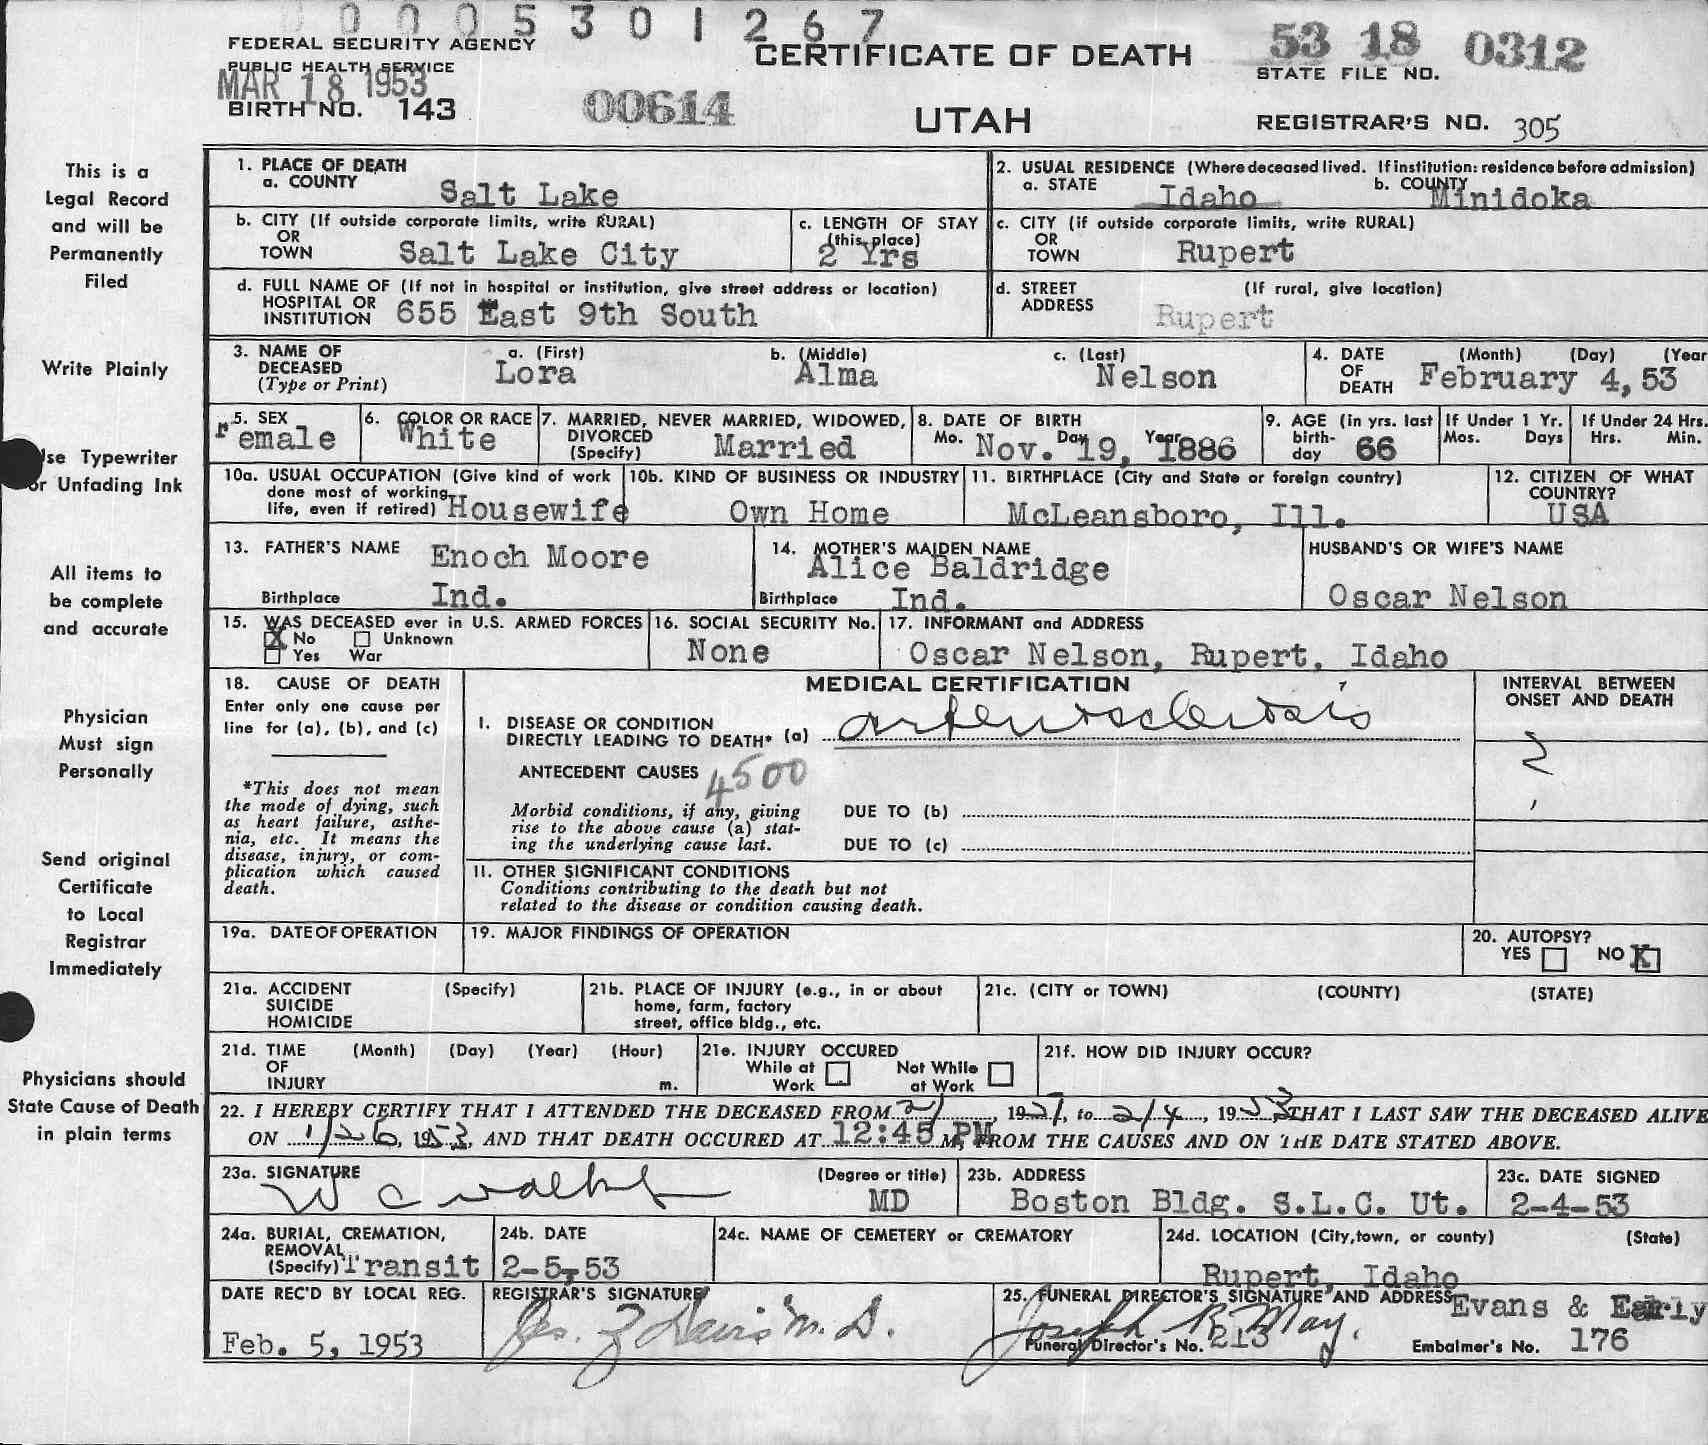 0000530 1267
FEDERAL SECURITY AGENCY
PUBLIC HEALTH SERVICE
MAR 18 1953
BIRTH NO. 143
00614
CERTIFICATE OF DEATH
UTAH
53 18 0312
STATE FILE NO.
REGISTRAR'S NO. 305
This is a
Legal Record
and will be
Permanently
Filed
Write Plainly
se Typewriter
or Unfading Ink
All items to
be complete
and accurate
Physician
Must sign
Personally
Send original
Certificate
to Local
Registrar
Immediately
Physicians should
State Cause of Death
in plain terms
1. PLACE OF DEATH
a. COUNTY Salt Lake
2. USUAL RESIDENCE (Where deceased lived. If institution: residence before admission)
a. STATE Idaho b. COUNTY Minidoka
b. CITY (If outside corporate limits, write RURAL)
OR
TOWN Salt Lake City
c. LENGTH OF STAY
(this place)
2 Yrs
c. CITY (if outside corporate limits, write RURAL)
OR
TOWN Rupert
d. FULL NAME OF (If not in hospital or institution, give street address or location)
HOSPITAL OR
INSTITUTION 655 East 9th South
d. STREET (If rural, give location)
ADDRESS
Rupert
3. NAME OF
DECEASED
(Type or Print)
a. (First)
Lora
b. (Middle)
Alma
c. (Last)
Nelson
4. DATE (Month) (Day) (Year
OF
DEATH February 4, 53
5. SEX
Female
6. COLOR OR RACE
White
7. MARRIED, NEVER MARRIED, WIDOWED,
DIVORCED
(Specify) Married
8. DATE OF BIRTH
Mo. Day Year
Nov. 19, 1886
9. AGE (in yrs. last
birth-
day 66
If Under 1 Yr.
Mos. Days
If Under 24 Hrs.
Hrs. Min.
10a. USUAL OCCUPATION (Give kind of work
done most of working
life, even if retired) Housewife
10b. KIND OF BUSINESS OR INDUSTRY
Own Home
11. BIRTHPLACE (City and State or foreign country)
McLeansboro, Ill.
12. CITIZEN OF WHAT
COUNTRY?
USA
13. FATHER'S NAME Enoch Moore
Birthplace Ind.
14. MOTHER'S MAIDEN NAME
Alice Baldridge
Birthplace Ind.
HUSBAND'S OR WIFE'S NAME
Oscar Nelson
15. WAS DECEASED ever in U.S. ARMED FORCES
X No Unknown
Yes War
16. SOCIAL SECURITY No.
None
17. INFORMANT and ADDRESS
Oscar Nelson, Rupert, Idaho
18. CAUSE OF DEATH
Enter only one cause per
line for (a), (b), and (c)
*This does not mean
the mode of dying, such
as heart failure, asthe-
nia, etc. It means the
disease, injury, or com-
plication which caused
death.
MEDICAL CERTIFICATION
I. DISEASE OR CONDITION
DIRECTLY LEADING TO DEATH* (a) arteriosclerosis
ANTECEDENT CAUSES 4500
Morbid conditions, if any, giving
rise to the above cause (a) stat-
ing the underlying cause last.
DUE TO (b)
DUE TO (c)
II. OTHER SIGNIFICANT CONDITIONS
Conditions contributing to the death but not
related to the disease or condition causing death.
INTERVAL BETWEEN
ONSET AND DEATH
?
19a. DATE OF OPERATION
19. MAJOR FINDINGS OF OPERATION
20. AUTOPSY?
YES NO X
21a. ACCIDENT (Specify)
SUICIDE
HOMICIDE
21b. PLACE OF INJURY (e.g., in or about
home, farm, factory
street, office bldg., etc.
21c. (CITY or TOWN) (COUNTY) (STATE)
21d. TIME (Month) (Day) (Year) (Hour)
OF
INJURY m.
21e. INJURY OCCURED
While at Not While
Work at Work
21f. HOW DID INJURY OCCUR?
22. I HEREBY CERTIFY THAT I ATTENDED THE DECEASED FROM 2/ , 1951, to 2/4, 1953, THAT I LAST SAW THE DECEASED ALIVE
ON 1/26, 1953, AND THAT DEATH OCCURED AT 12:45 PM M, FROM THE CAUSES AND ON THE DATE STATED ABOVE.
23a. SIGNATURE (Degree or title)
W C MD
23b. ADDRESS
Boston Bldg. S.L.C. Ut.
23c. DATE SIGNED
2-4-53
24a. BURIAL, CREMATION,
REMOVAL
(Specify) Transit
24b. DATE
2-5-53
24c. NAME OF CEMETERY or CREMATORY
24d. LOCATION (City, town, or county) (State)
Rupert, Idaho
DATE REC'D BY LOCAL REG.
Feb. 5, 1953
REGISTRAR'S SIGNATURE
Jas. Z Davis M. D.
25. FUNERAL DIRECTOR'S SIGNATURE AND ADDRESS Evans & Early
Joseph R. May.
Funeral Director's No. 213
Embalmer's No. 176